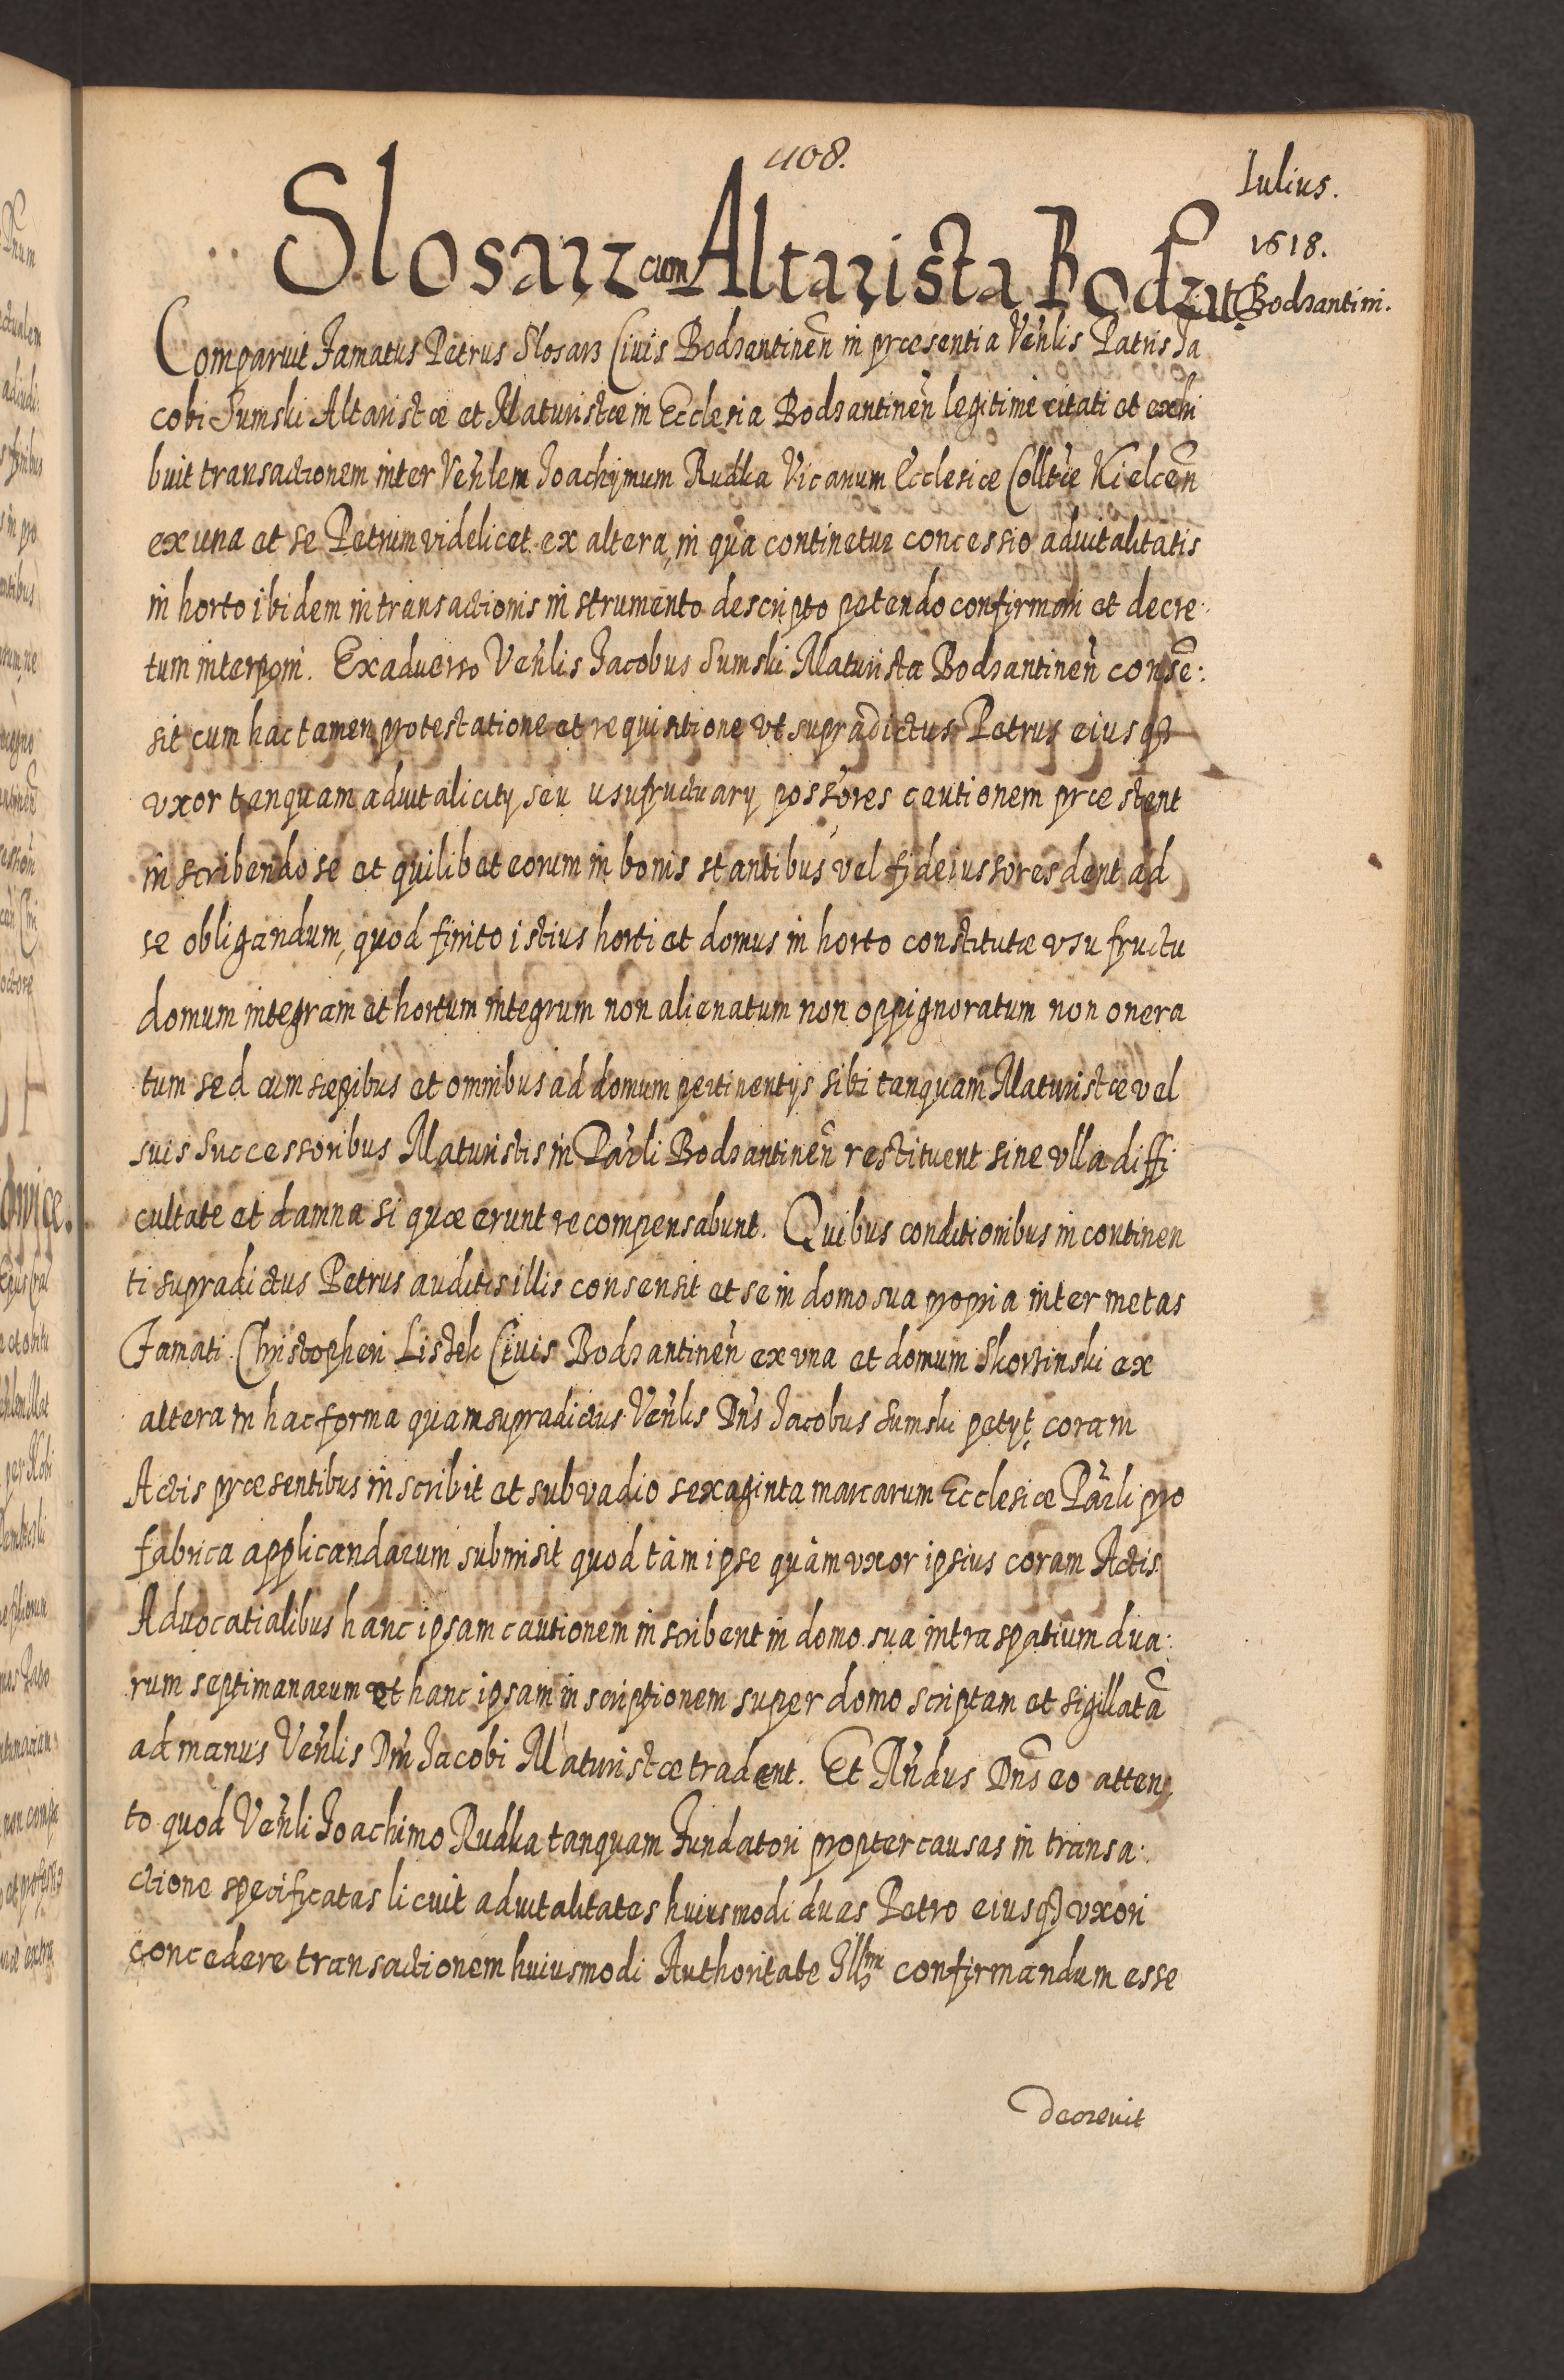 408.
Iulius.
1618.
Bodzantini.
Slosarz cum Altarista Bodzñt.
Comparuit Famatus Petrus Slosarz Ciuis Bodzantineñ in præsentia Veñlis Patris Ia
cobi Sumski Altaristæ et Maturistæ in Ecclesia Bodzantineñ legitime citati et exhi
buit transactionem inter Veñlem Ioachymum Rudka Vicarium Ecclesiæ Colltæ Kielceñ
ex una et se Petrum videlicet ex altera, in qua continetur concessio aduitalitatis
in horto ibidem in transactionis instrumento descripto petendo confirmari et decre:
tum interponi. Exaduerso Veñlis Iacobus Sumski Maturista Bodzantineñ consẽ:
sit cum hac tamen protestatione et requisitione vt supradictus Petrus eiusq3
vxor tanquam aduitalicity seu usufructuary possores cautionem præstent
inscribendo se et quilibet eorum in bonis stantibus vel fideiussores dent ad
se obligandum, quod finito istius horti et domus in horto constitutæ vsufructu
domum integram et hortum integrum non alienatum non oppignoratum non onera
tum sed cum sæpibus et omnibus ad domum pertinentys sibi tanquam Maturistæ vel
suis Successoribus Maturistis in Parli Bodzantineñ restituent sine vlla diffi
cultate et damna si quæ erunt recompensabunt. Quibus conditionibus in continen
ti supradictus Petrus auditis illis consensit et se in domo sua propria inter metas
Famati Christopheri Listek Ciuis Bodzantineñ ex vna et domum Skorzinski ex
altera in hac forma quam supradictus Veñlis Dñs Iacobus Sumski petyt coram
Actis præsentibus inscribit et sub vadio sexaginta marcarum Ecclesiæ Parli pro
fabrica applicandarum submisit quod tàm ipse quàm vxor ipsius coram Actis
Aduocatialibus hanc ipsam cautionem inscribent in domo sua intra spatium dua:
rum septimanarum et hanc ipsam inscriptionem super domo scriptam et sigillatã
ad manus Veñlis Dñi Iacobi Maturistæ tradent. Et Rñdus Dñs eo atten
to quod Veñli Ioachimo Rudka tanquam Fundatori propter causas in transa:
ctione specificatas licuit aduitalitates huiusmodi duas Petro eiusq3 vxori
concedere transactionem huiusmodi Authoritate Illmæ confirmandum esse
decreuit